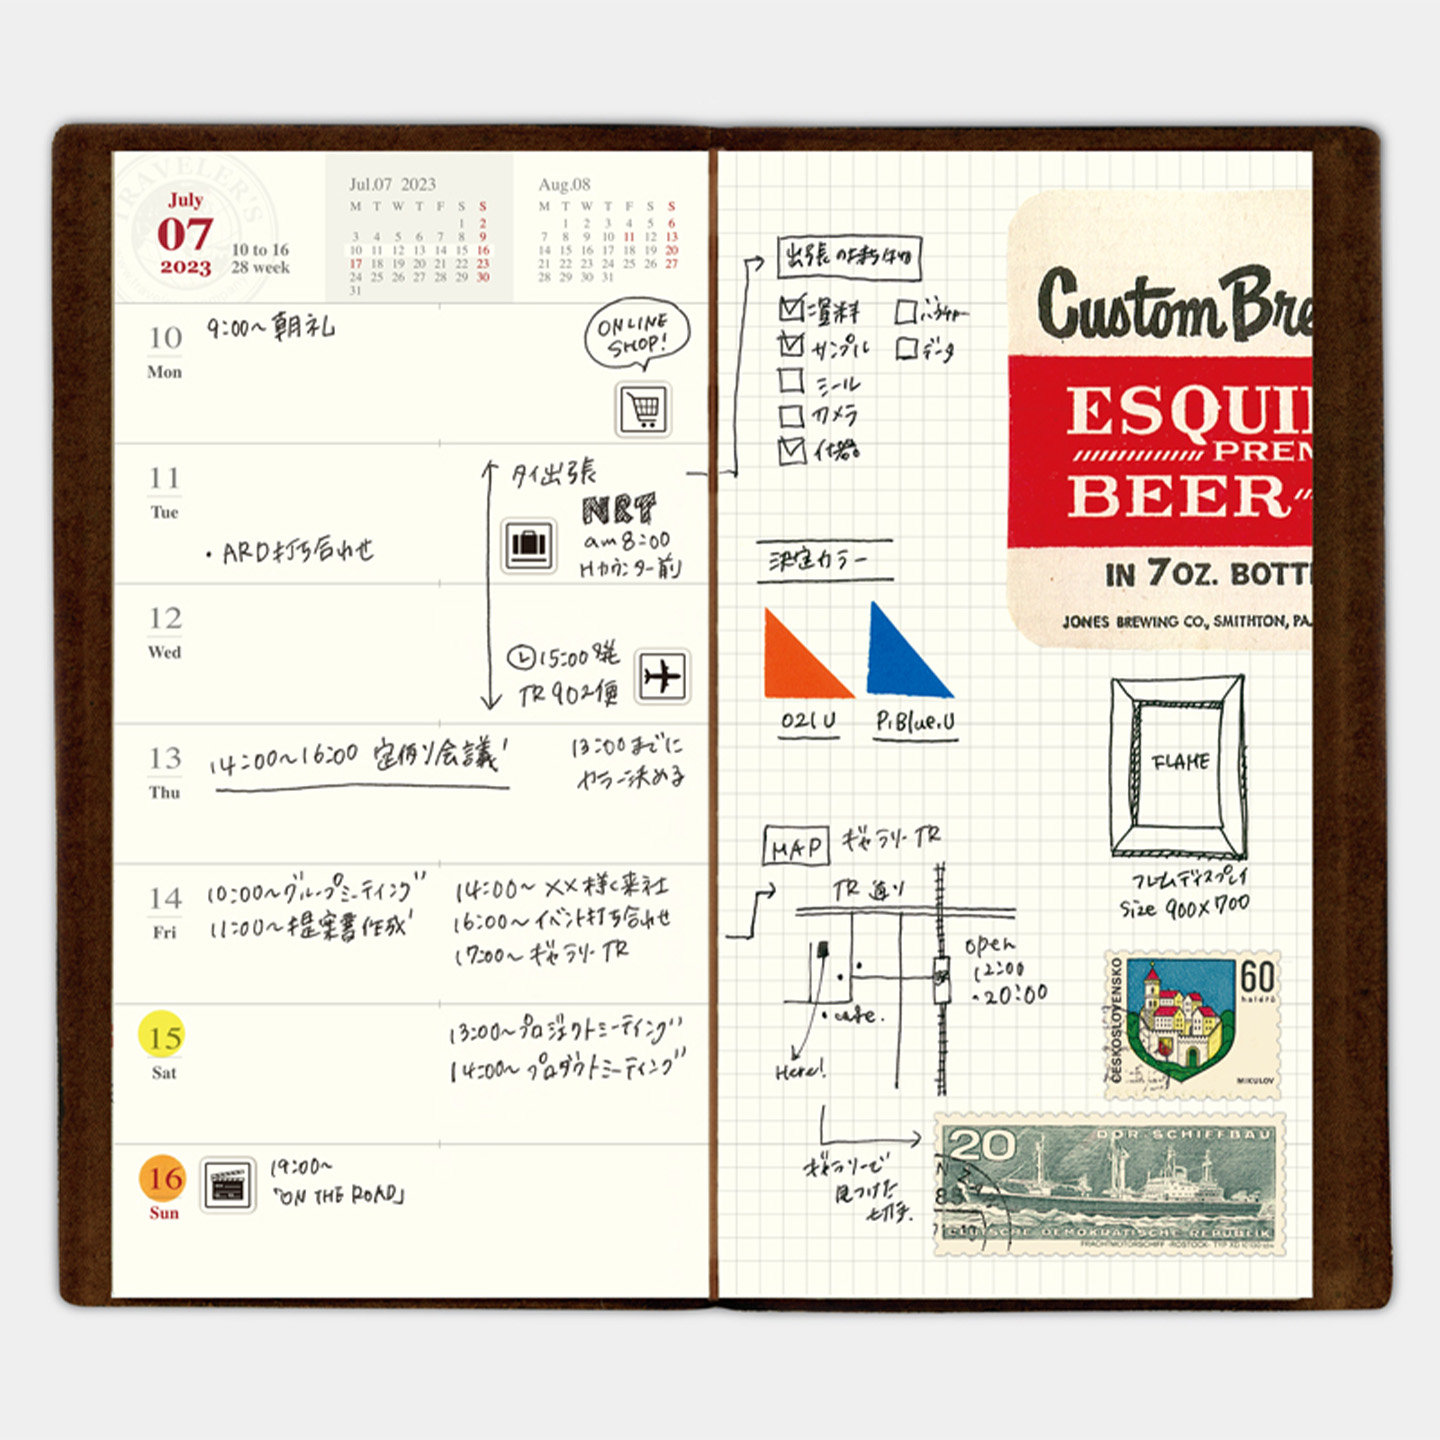 TRAVELER'S
July
07
2023
10 to 16
28 week
Jul.07 2023
M T W T F S S
1 2
3 4 5 6 7 8 9
10 11 12 13 14 15 16
17 18 19 20 21 22 23
24 25 26 27 28 29 30
31
Aug.08
M T W T F S S
1 2 3 4 5 6
7 8 9 10 11 12 13
14 15 16 17 18 19 20
21 22 23 24 25 26 27
28 29 30 31
10
Mon
9:00～朝礼
ONLINE
SHOP!
11
Tue
・ARD打ち合わせ
タイ出張
NRT
am 8:00
Hカウンター前
12
Wed
15:00発
TR902便
13
Thu
14:00～16:00 定例会議
13:00までに
カラー決める
14
Fri
10:00～グループミーティング
11:00～提案書作成
14:00～××様ご来社
16:00～イベント打ち合わせ
17:00～ギャラリーTR
15
Sat
13:00～プロジェクトミーティング
14:00～プロダクトミーティング
16
Sun
19:00～
「ON THE ROAD」
出張の持ち物
サンプル
データ
シール
カメラ
什器
決定カラー
021U
P.Blue.U
MAP
ギャラリーTR
TR通り
open
12:00
・20:00
・cafe.
Here!
ギャラリーで
見つけた
切手.
Custom Bre
ESQUI
PREM
BEER
IN 7 OZ. BOTT
JONES BREWING CO., SMITHTON, PA.
FLAME
フレームディスプレイ
Size 900×700
ČESKOSLOVENSKO
60
haléřů
MIKULOV
20
DDR-SCHIFFBAU
DEUTSCHE DEMOKRATISCHE REPUBLIK
FRACHTMOTORSCHIFF · ROSTOCK · TYP XD